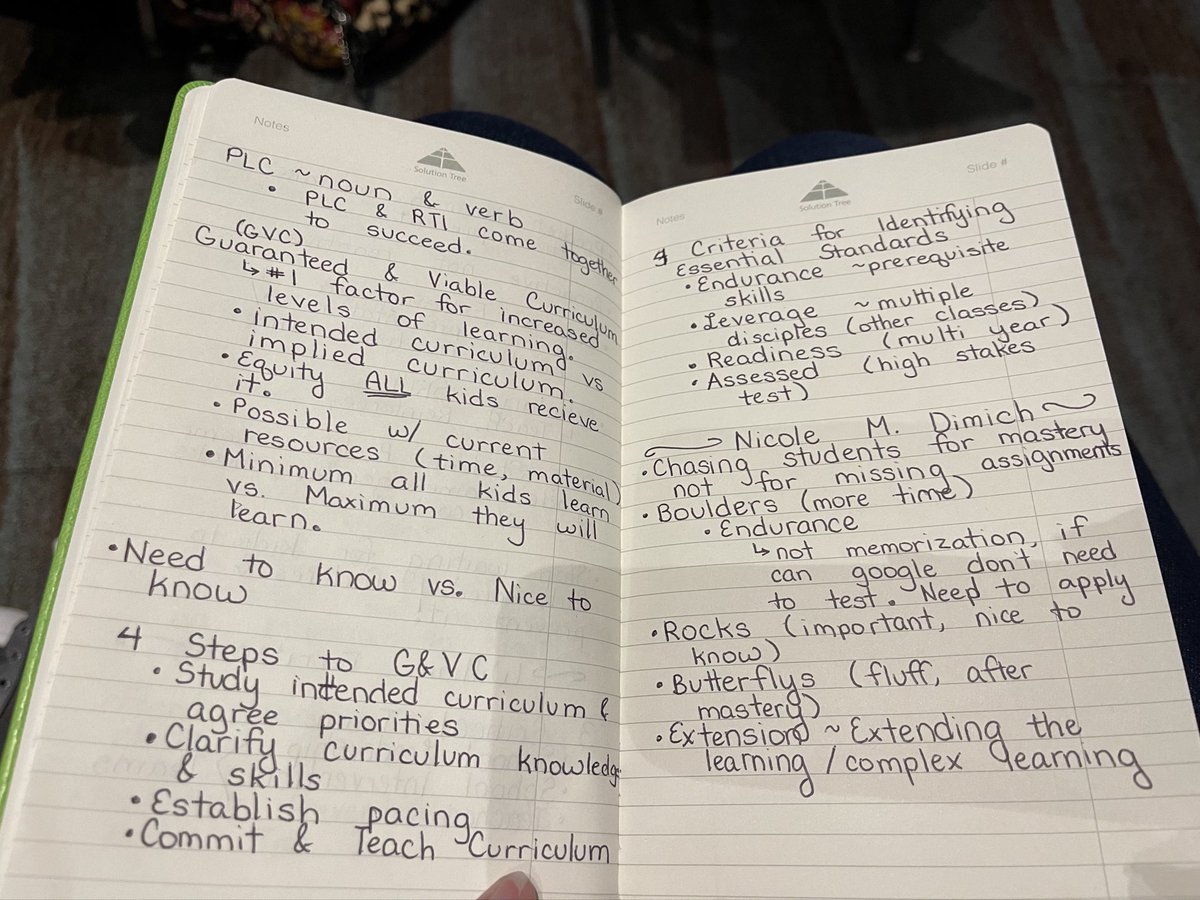 Notes
Solution Tree
Slide #
PLC ~ noun & verb
• PLC & RTI come together
to succeed.
(GVC)
Guaranteed & Viable Curriculum
↳ #1 factor for increased
levels of learning.
• Intended curriculum vs
implied curriculum.
• Equity ALL kids recieve
it.
• Possible w/ current
resources (time, material)
• Minimum all kids learn
vs. Maximum they will
learn.
• Need to know vs. Nice to
know
4 Steps to G&VC
• Study intended curriculum &
agree priorities
• Clarify curriculum knowledge
& skills
• Establish pacing
• Commit & Teach Curriculum
Notes
Solution Tree
Slide #
4 Criteria for Identifying
Essential Standards
• Endurance ~prerequisite
skills
• Leverage ~ multiple
disciples (other classes)
• Readiness (multi year)
• Assessed (high stakes
test)
Nicole M. Dimich
• Chasing students for mastery
not for missing assignments
• Boulders (more time)
• Endurance
↳ not memorization, if
can google don't need
to test. Need to apply
• Rocks (important, nice to
know)
• Butterflys (fluff, after
mastery)
• Extension ~ Extending the
learning / complex learning